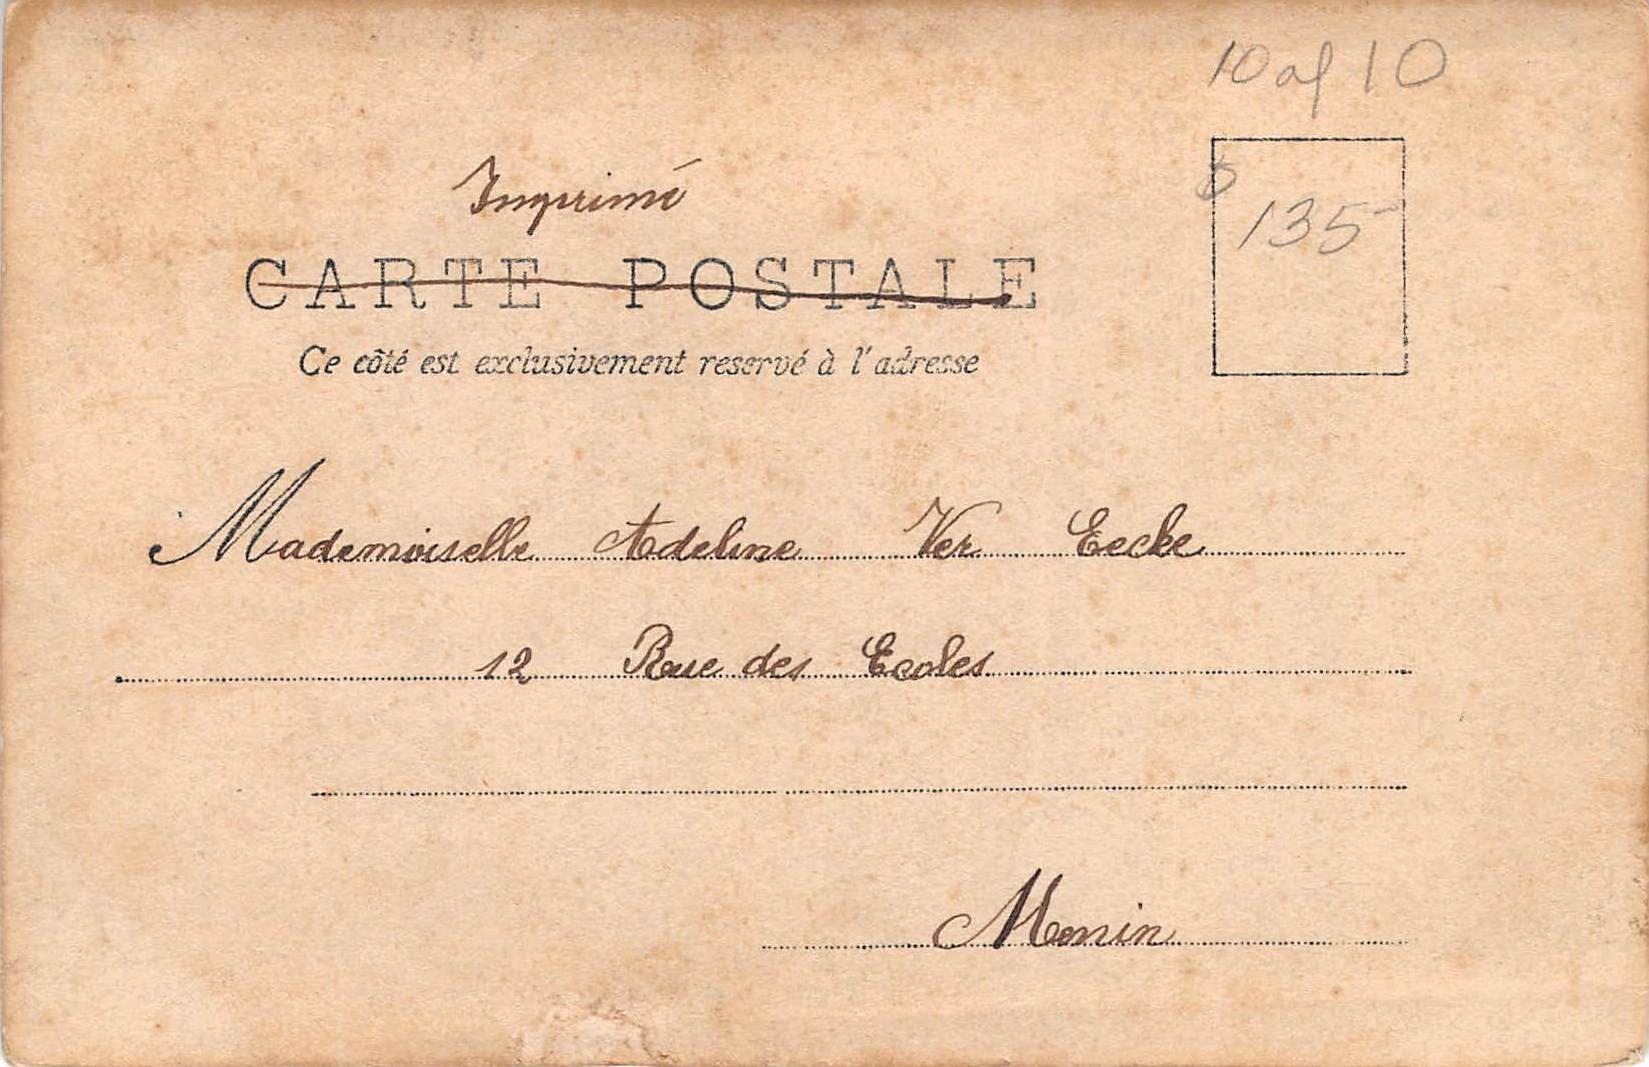 10 of 10
$
135-
Imprimé
CARTE POSTALE
Ce côté est exclusivement reservé à l'adresse
Mademoiselle Adeline Ver Eecke
12 Rue des Ecoles
Menin